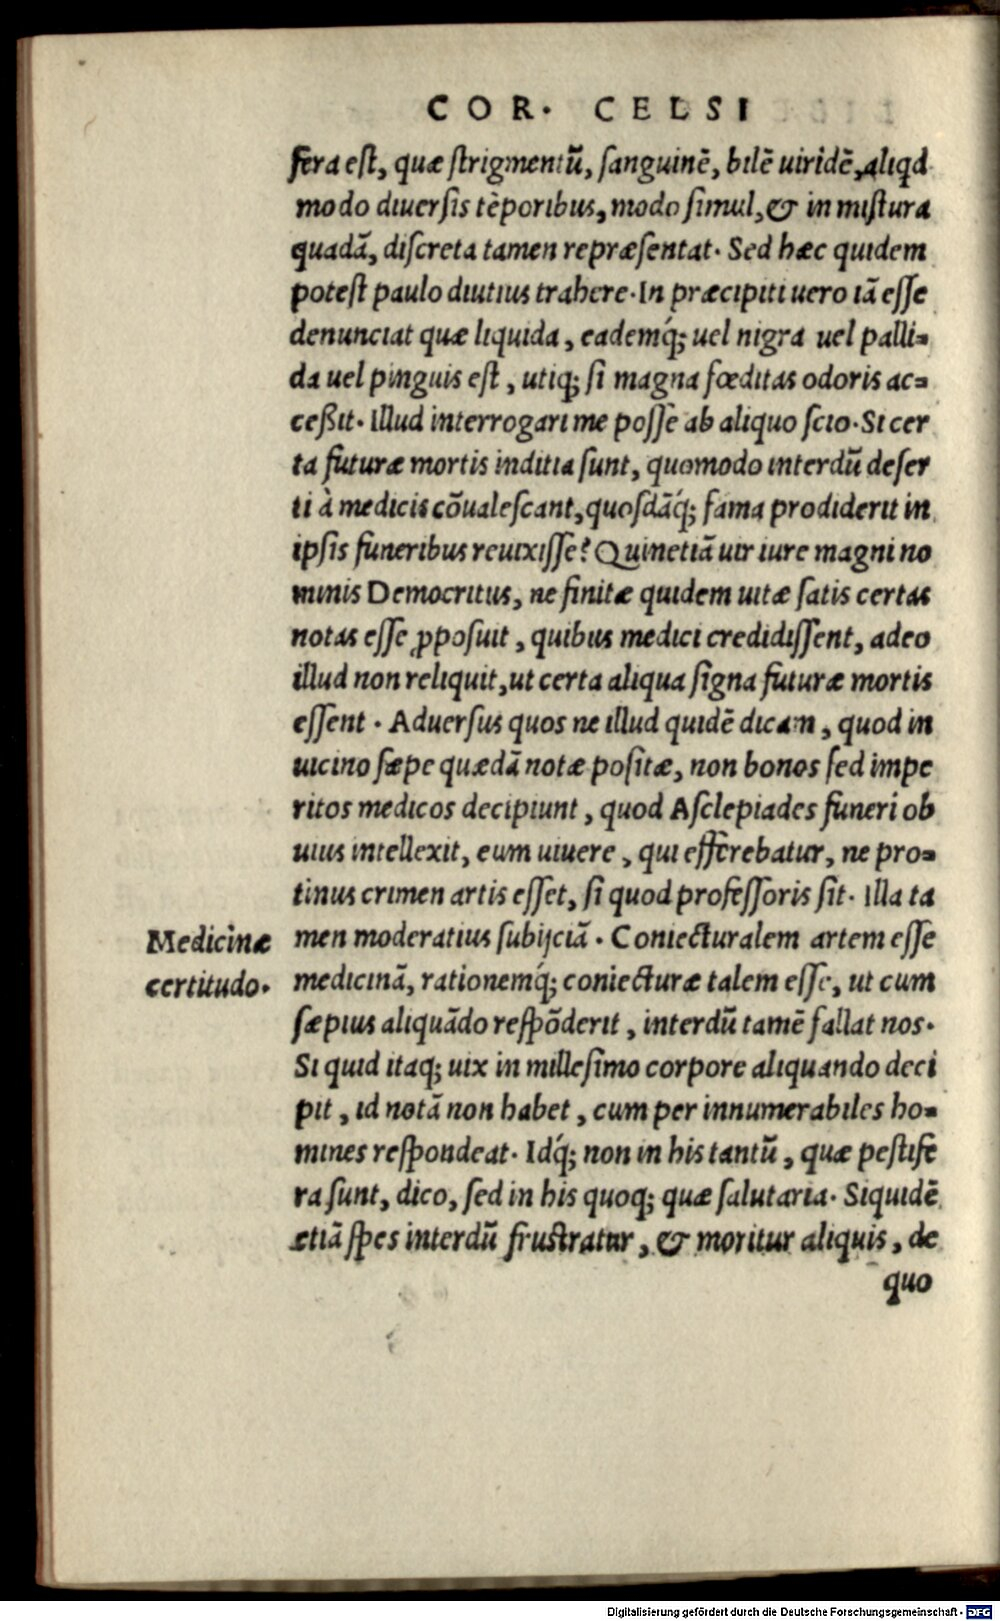 COR. CELSI
fera est, quæ strigmentū, sanguinē, bilē uiridē, aliqd
modo diuersis tēporibus, modo simul, & in mistura
quadā, discreta tamen repræsentat. Sed hæc quidem
potest paulo diutius trahere. In præcipiti uero iā esse
denunciat quæ liquida, eademq́; uel nigra uel palli=
da uel pinguis est, utiq; si magna fœditas odoris ac=
ceßit. Illud interrogari me posse ab aliquo scio. Si cer
ta futuræ mortis inditia sunt, quomodo interdū deser
ti à medicis cōualescant, quosdāq́; fama prodiderit in
ipsis funeribus reuixisse? Quinetiā uir iure magni no
minis Democritus, ne finitæ quidem uitæ satis certas
notas esse ꝓposuit, quibus medici credidissent, adeo
illud non reliquit, ut certa aliqua signa futuræ mortis
essent. Aduersus quos ne illud quidē dicam, quod in
uicino sæpe quædā notæ positæ, non bonos sed impe
ritos medicos decipiunt, quod Asclepiades funeri ob
uius intellexit, eum uiuere, qui efferebatur, ne pro=
tinus crimen artis esset, si quod professoris sit. Illa ta
Medicinæ
certitudo.
men moderatius subijciā. Coniecturalem artem esse
medicinā, rationemq́; coniecturæ talem esse, ut cum
sæpius aliquādo respōderit, interdū tamē fallat nos.
Si quid itaq; uix in millesimo corpore aliquando deci
pit, id notā non habet, cum per innumerabiles ho=
mines respondeat. Idq́; non in his tantū, quæ pestife
ra sunt, dico, sed in his quoq; quæ salutaria. Siquidē
etiā spes interdū frustratur, & moritur aliquis, de
quo
Digitalisierung gefördert durch die Deutsche Forschungsgemeinschaft - DFG